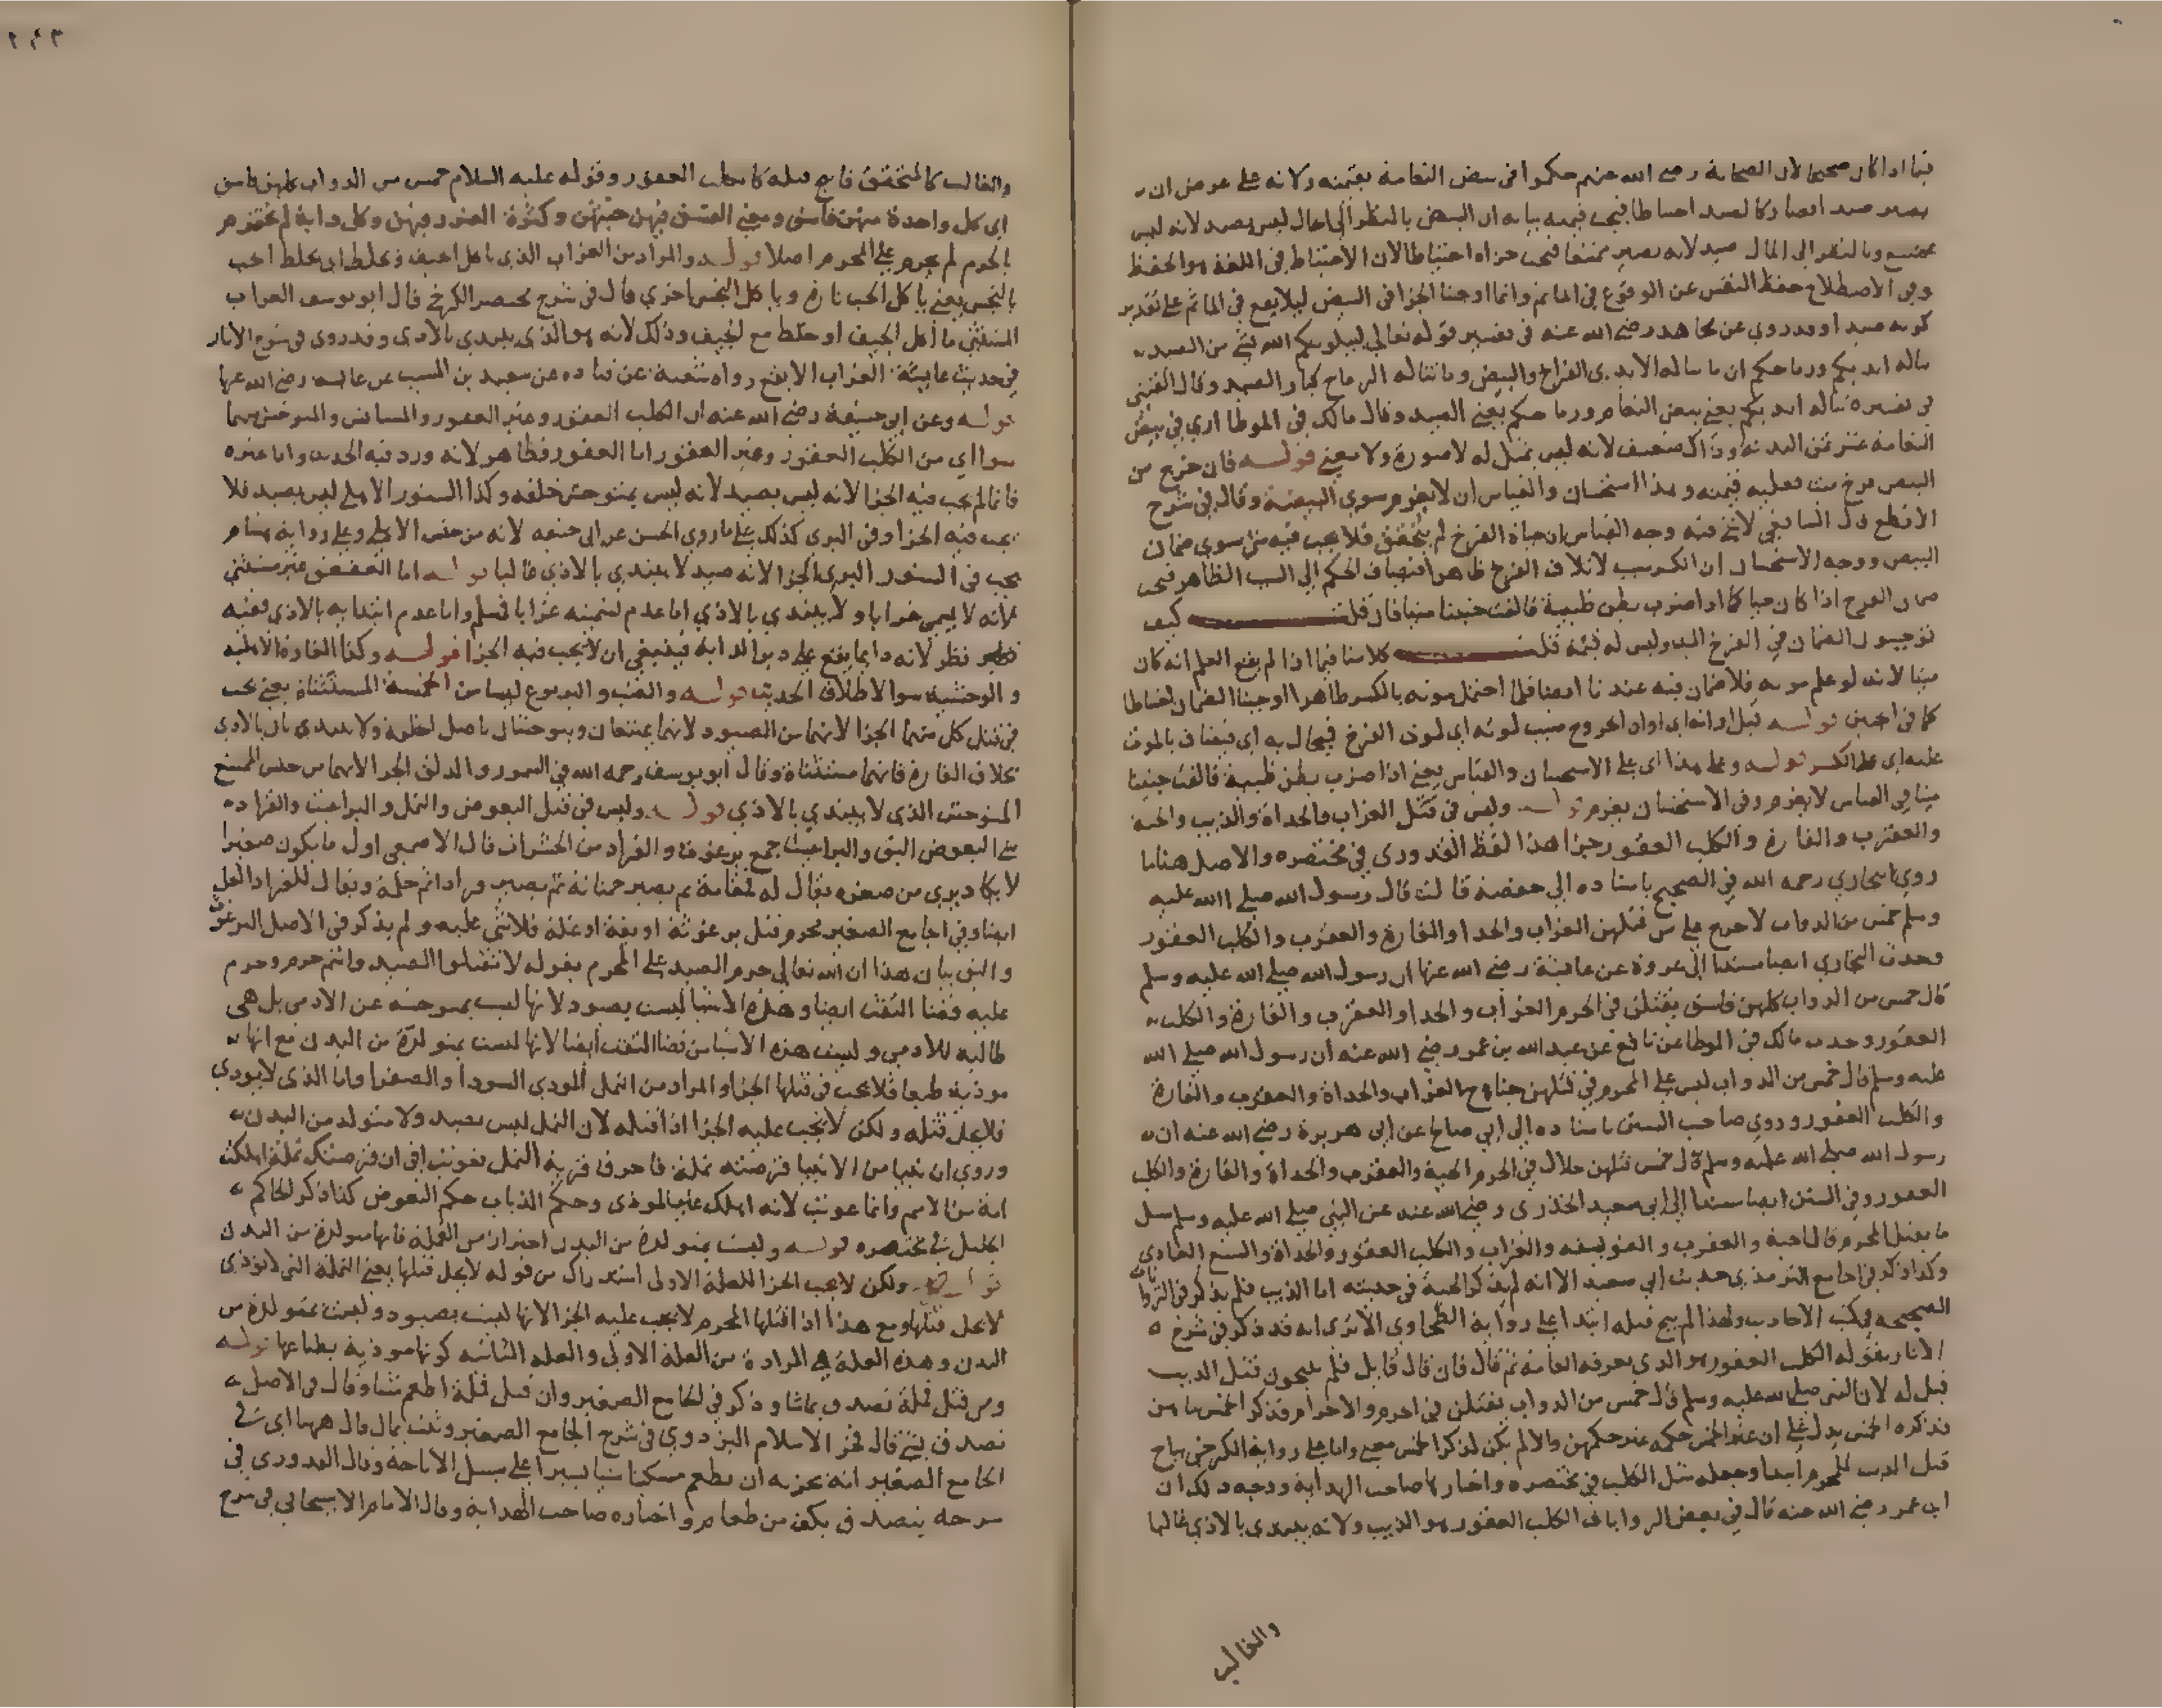 فيما اذا كان صحيحا لان الصحابة رضي الله عنهم حكموا في بيض النعامة بقيمته ولانه على عرض ان
يصير صيدا فصار كالصيد احتياطا فيجب قيمته بيانه ان البيض بالنظر الى الحال ليس بصيد لانه ليس
بممتنع وبالنظر الى المال صيد لانه يصير ممتنعا فيجب جزاه احتياطا لان الاحتياط في اللغة هو الحفظ
وفي الاصطلاح حفظ النفس عن الوقوع في الماثم وانما اوجبنا الجزا في البيض ليلا يقع في الماثم على تقدير
كونه صيدا وقد روي عن مجاهد رضي الله عنه في تفسير قوله تعالى ليبلونكم الله بشي من الصيد
تناله ايديكم ورماحكم ان ما تناله الايدي الفراخ والبيض وما تناله الرماح كبار الصيد وقال القتبي
في تفسيره تناله ايديكم يعني بيض النعام ورماحكم يعني الصيد وقال مالك في الموطا ارى في بيض
النعامة عشر ثمن البدنة وذاك ضعيف لانه ليس بمثل له لا صورة ولا معنى قوله فان خرج من
البيض فرخ ميت فعليه قيمته وهذا استحسان والقياس ان لا يغرم سوى البيضة وقال في شرح
الاقطع قال الشافعي لا شي فيه وجه القياس ان حياة الفرخ لم يتحقق فلا يجب فيه شي سوى ضمان
البيض ووجه الاستحسان ان الكسر سبب لاتلاف الفرخ ظاهرا فيضاف الحكم الى السبب الظاهر فيجب
ضمان الفرخ اذا كان حيا كما اذا ضرب بطن ظبية فالقت جنينا ميتا فان قلت كيف
توجبون الضمان في الفرخ الميت وليس له قيمة قلت كلامنا فيما اذا لم يقع العلم انه كان
ميتا لانه لو علم موته فلا ضمان فيه عندنا ايضا فلما احتمل موته بالكسر ظاهرا اوجبنا الضمان احتياطا
كما في الجنين قوله قبل اوانه اي اوان الخروج سبب لموته اي لموت الفرخ فيحال به اي فيضاف بالموت
عليه اي على الكسر قوله وعلى هذا اي على الاستحسان والقياس يعني اذا ضرب بطن ظبية فالقت جنينا
ميتا في القياس لا يغرم وفي الاستحسان يغرم قوله وليس في قتل الغراب والحداة والذيب والحية
والعقرب والفارة والكلب العقور جزا هذا لفظ القدوري في مختصره والاصل هنا ما
روي البخاري رحمه الله في الصحيح باسناده الى حفصة قالت قال رسول الله صلى الله عليه
وسلم خمس من الدواب لا حرج على من قتلهن الغراب والحدا والفارة والعقرب والكلب العقور
وحدث البخاري ايضا مسندا الى عروة عن عايشة رضي الله عنها ان رسول الله صلى الله عليه وسلم
قال خمس من الدواب كلهن فاسق يقتلن في الحرم الغراب والحدا والعقرب والفارة والكلب
العقور وحدث مالك في الموطا عن نافع عن عبد الله بن عمر رضي الله عنه ان رسول الله صلى الله
عليه وسلم قال خمس من الدواب ليس على المحرم في قتلهن جناح الغراب والحداة والعقرب والفارة
والكلب العقور وروي صاحب السنن باسناده الى ابي صالح عن ابي هريرة رضي الله عنه ان
رسول الله صلى الله عليه وسلم قال خمس قتلهن حلال في الحرم الحية والعقرب والحداة والفارة والكلب
العقور وفي السنن ايضا مسندا الى ابي سعيد الخذري رضي الله عنه عن النبي صلى الله عليه وسلم سل
ما يقتل المحرم قال الحية والعقرب والفويسقه والغراب والكلب العقور والحداة والسبع العادي
وكذا ذكر في جامع الترمذي حديث ابي سعيد الا انه لم يذكر الحية في حديثه اما الذيب فلم يذكر في الروايات
الصحيحه في كتب الاحاديث ولهذا لم يبح قتله ابتدا على رواية الطحاوي الا ترى انه قد ذكر في شرح
الاثار بقوله الكلب العقور هو الذي يعرفه العامة ثم قال فان قال قايل فلم يبيحون قتل الذيب
قيل له لان النبي صلى الله عليه وسلم قال خمس من الدواب يقتلن في الحرم والاحرام فذكر الخمس ما هن
فذكره الخمس يدل على ان غير الخمس حكمه غير حكمهن والا لم يكن لذكر الخمس معنى واما على رواية الكرخي يباح
قتل الذيب للمحرم ابتدا وجعله مثل الكلب في مختصره واختارها صاحب الهداية ووجه ذلك ان
ابن عمر رضي الله عنه قال في بعض الروايات الكلب العقور هو الذيب ولانه يبتدي بالاذي غالبا
والغالب
والغالب كالمتحقق فابيح قتله كالكلب العقور وقوله عليه السلام خمس من الدواب كلهن فاسق
اي كل واحدة منهن فاسق ومعنى الفسق فيهن خبثهن وكثرة الضرر فيهن وكل دابة لم تحترم
بالحرم لم يحرم على المحرم اصلا قوله والمراد من الغراب الذي ياكل الجيف ويخلط اي يخلط الحب
بالنجس يعني ياكل الحب تارة وياكل النجس اخري قال في شرح مختصر الكرخي قال ابو يوسف الغراب
المستثنى ما اكل الجيف او خلط مع الجيف وذلك لانه هو الذي يبتدي بالاذي وقد روى في شرح الاثار
في حديث عايشة الغراب الابقع رواه شعبة عن قتاده عن سعيد بن المسيب عن عايشه رضي الله عنها
قوله وعن ابي حنيفة رضي الله عنه ان الكلب العقور وغير العقور والمستانس والمتوحش منهما
سوا اي من الكلب العقور وغير العقور اما العقور فظاهر لانه ورد فيه الحديث واما غيره
فانما لم يجب فيه الجزا لانه ليس بصيد لانه ليس بمتوحش خلقه وكذا السنور الاهلي ليس بصيد فلا
يجب فيه الجزا وفي البري كذلك على ما روي الحسن عن ابي حنيفه لانه من جنس الاهلي وعلى رواية هشام
يجب في السنور البري الجزا لانه صيد لا يبتدي بالاذي غالبا قوله اما العقعق غير مستثنى
لانه لا يسمى غرابا ولا يبتدي بالاذي اما عدم تسميته غرابا فمسلم واما عدم ابتدايه بالاذي ففيه
نظر لانه دايما يقع على دبر الدابة فينبغي ان لا يجب فيه الجزا قوله وكذا الفارة الاهليه
والوحشيه سوا لاطلاق الحديث قوله والضب واليربوع ليسا من الخمسة المستثناة يعني يجب
في قتل كل منهما الجزا لانهما من الصيود لانهما يمتنعان ويتوحشان باصل الخلقة ولا يبتديان بالاذي
بخلاف الفارة فانها مستثناة وقال ابو يوسف رحمه الله في السمور والدلق الجزا لانهما من جنس الممتنع
المتوحش الذي لا يبتدي بالاذي قوله وليس في قتل البعوض والنمل والبراغيث والقراده
شي البعوض البق والبراغيث جمع برغوث والقراد من الحشرات قال الاصمعي اول ما يكون صغيرا
لا يكاد يرى من صغره يقال له قمقامة ثم يصير حمنانة ثم يصير قرادا ثم حلمة ويقال للقراد العل
ايضا وفي الجامع الصغير محرم قتل برغوثة او بقة او نملة فلا شي عليه ولم يذكر في الاصل البرغوث
والبق بيان هذا ان الله تعالى حرم الصيد على المحرم بقوله لا تقتلوا الصيد وانتم حرم وحرم
عليه قضا التفث ايضا وهذه الاشيا ليست بصيود لانها ليست بمتوحشه عن الادمي بل هي
طالبه للادمي وليست هذه الاشيا من قضا التفث ايضا لانها ليست بمتولدة من البدن مع انها
موذية طبعا فلا يجب في قتلها الجزا والمراد من النمل الموذي السودا والصفرا واما الذي لا يوذي
فلا يحل قتله ولكن لا يجب عليه الجزا اذا قتله لان النمل ليس بصيد ولا متولد من البدن
وروي ان نبيا من الانبيا قرصته نملة فاحرق قرية النمل فعوتب في ان قرصتك نملة اهلكت
امة من الامم وانما عوتب لانه اهلك غير الموذي وحكم الذباب حكم البعوض كذا ذكر الحاكم
الجليل في مختصره قوله وليست بمتولدة من البدن احتراز من القملة فانها متولدة من البدن
قوله ولكن لا يجب الجزا للعلة الاولى استدراك من قوله لا يحل قتلها يعني النملة التي لا توذي
لا يحل قتلها ومع هذا اذا قتلها المحرم لا يجب عليه الجزا لانها ليست بصيود وليست بمتولدة من
البدن وهذه العلة هي المرادة من العلة الاولى والعلة الثانيه كونها موذية بطباعها قوله
ومن قتل قملة تصدق بما شا وذكر في الجامع الصغير وان قتل قملة اطعم شيا وقال في الاصل
تصدق بشي قال فخر الاسلام البزدوي في شرح الجامع الصغير وثبت بما قال ههنا اي في
الجامع الصغير انه يجزيه ان يطعم مسكينا شيا يسيرا على سبيل الاباحة وقال القدوري في
شرحه يتصدق بكف من طعام واختاره صاحب الهداية وقال الامام الاسبيجابي في شرح